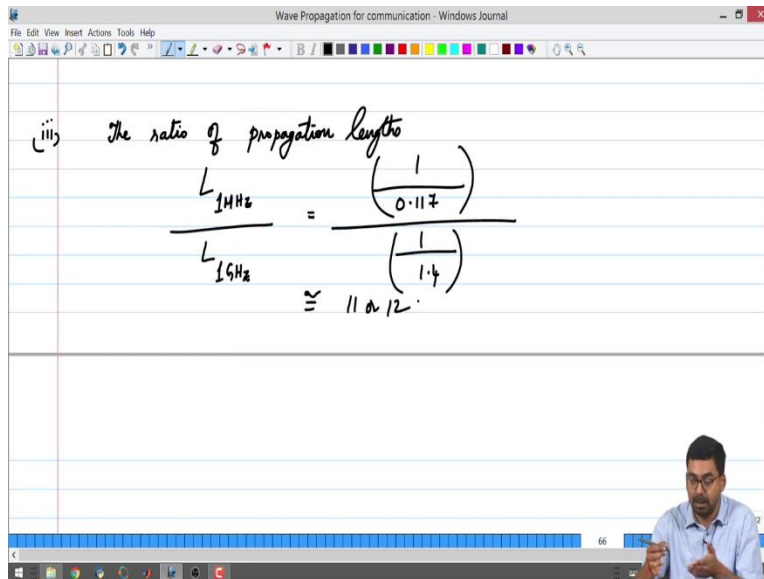 Wave Propagation for communication - Windows Journal
File Edit View Insert Actions Tools Help
B I
(iii) The ratio of propagation lengths
L 1MHz / L 1GHz = (1 / 0.117) / (1 / 1.4)
≅ 11 or 12.
66